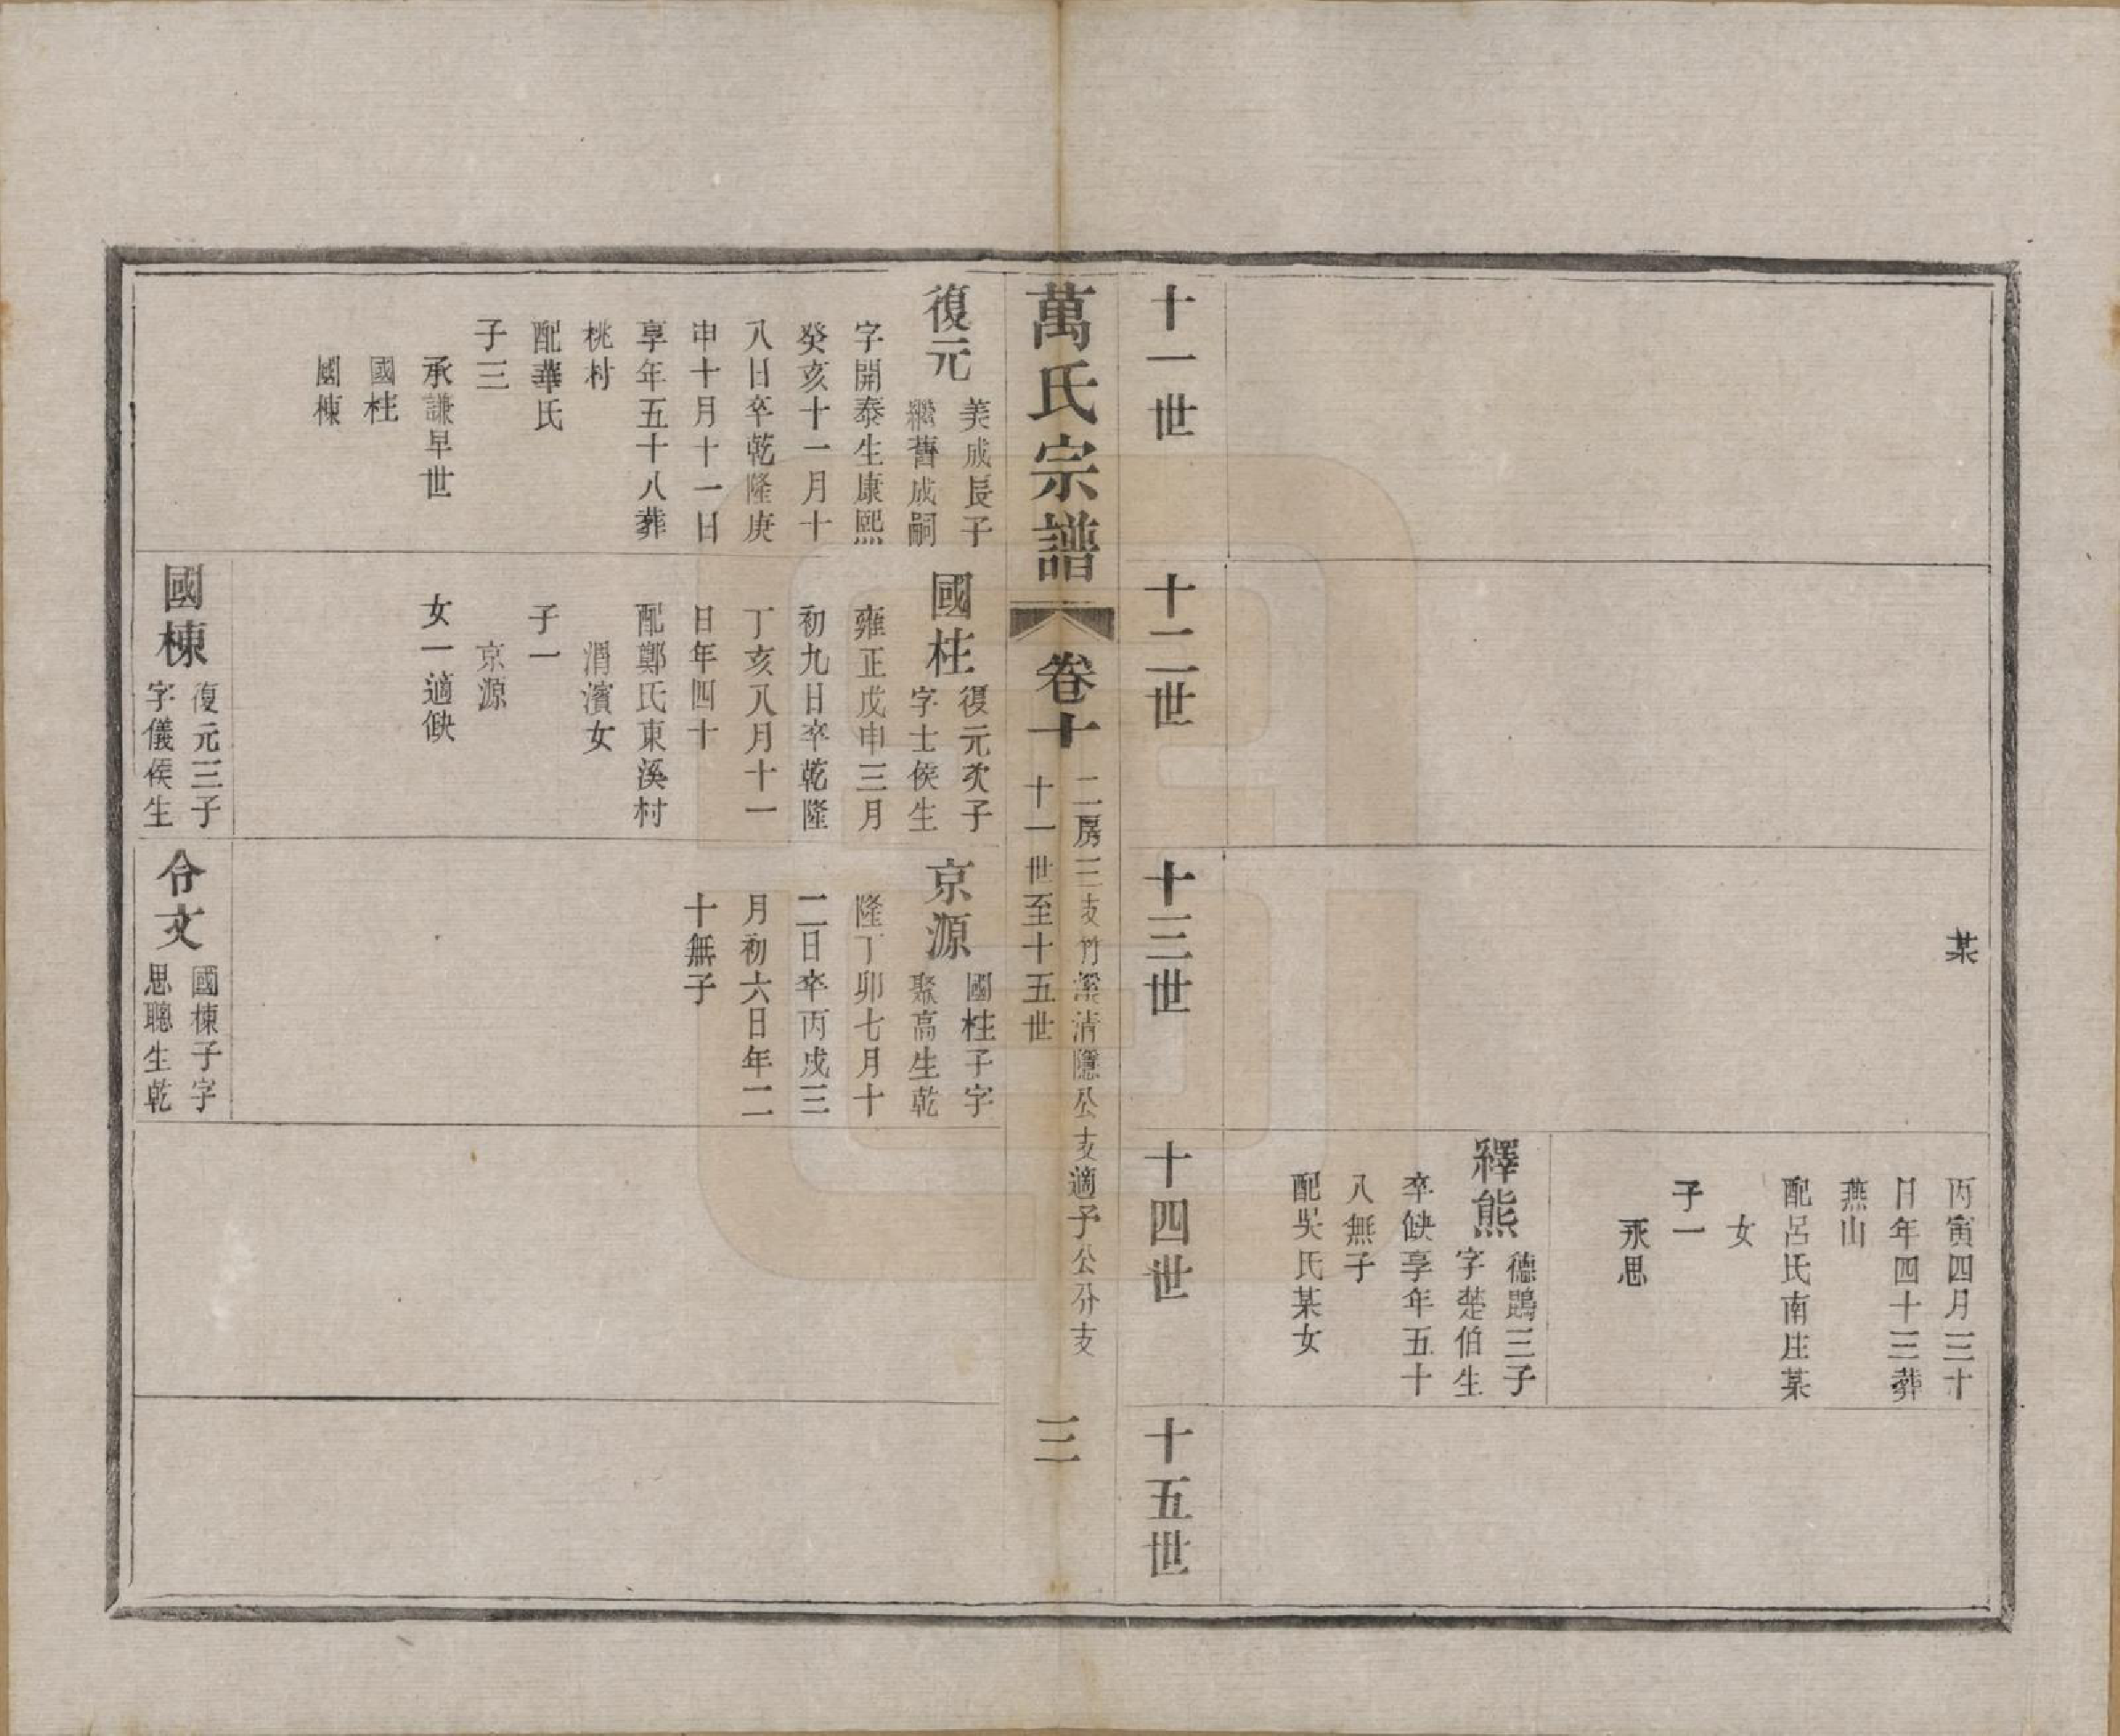 某
丙寅四月三十
日年四十三葬
燕山
配呂氏南庄某
女
子一
永思
釋熊
德鵾三子
字楚伯生
卒缺享年五十
八無子
配吳氏某女
十一世
十二世
十三世
十四世
十五世
萬氏宗譜
卷十
二房三支竹溪清隱公支適予公分支
十一世至十五世
三
復元
美成長子
繼舊成嗣
字開泰生康熙
癸亥十一月十
八日卒乾隆庚
申十月十一日
享年五十八葬
桃村
配華氏
子三
承謙早世
國柱
國棟
國柱
復元次子
字士俟生
雍正戊申三月
初九日卒乾隆
丁亥八月十一
日年四十
配鄭氏東溪村
渭濱女
子一
京源
女一適缺
國棟
復元三子
字儀俟生
京源
國柱子字
聚高生乾
隆丁卯七月十
二日卒丙戌三
月初六日年二
十無子
令文
國棟子字
思聰生乾